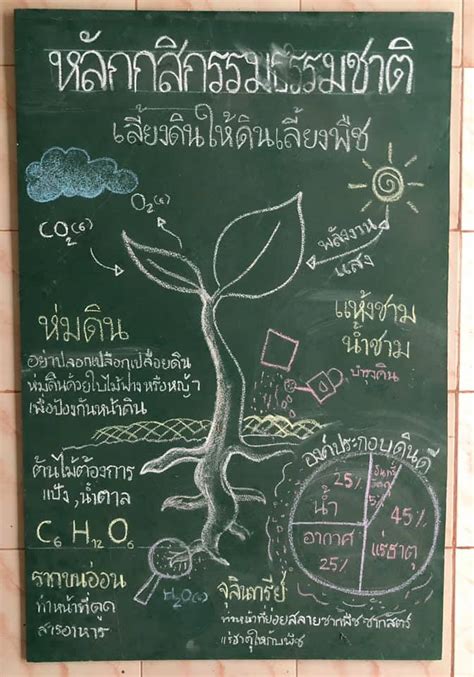 หลักกสิกรรมธรรมชาติ
เลี้ยงดินให้ดินเลี้ยงพืช
CO₂(g)
O₂(g)
พลังงาน
แสง
ห่มดิน
อย่าปลอกเปลือกเปลือยดิน
ห่มดินด้วยใบไม้ ฟาง หรือหญ้า
เพื่อป้องกันหน้าดิน
แห้งชาม
น้ำชาม
บำรุงดิน
ต้นไม้ต้องการ
แป้ง, น้ำตาล
C₆ H₁₂ O₆
องค์ประกอบดินดี
25%
น้ำ
อินทรีย์
วัตถุ
5%
45%
แร่ธาตุ
อากาศ
25%
รากขนอ่อน
ทำหน้าที่ดูด
สารอาหาร
H₂O
จุลินทรีย์
ทำหน้าที่ย่อยสลายซากพืช ซากสัตว์
แร่ธาตุให้กับพืช